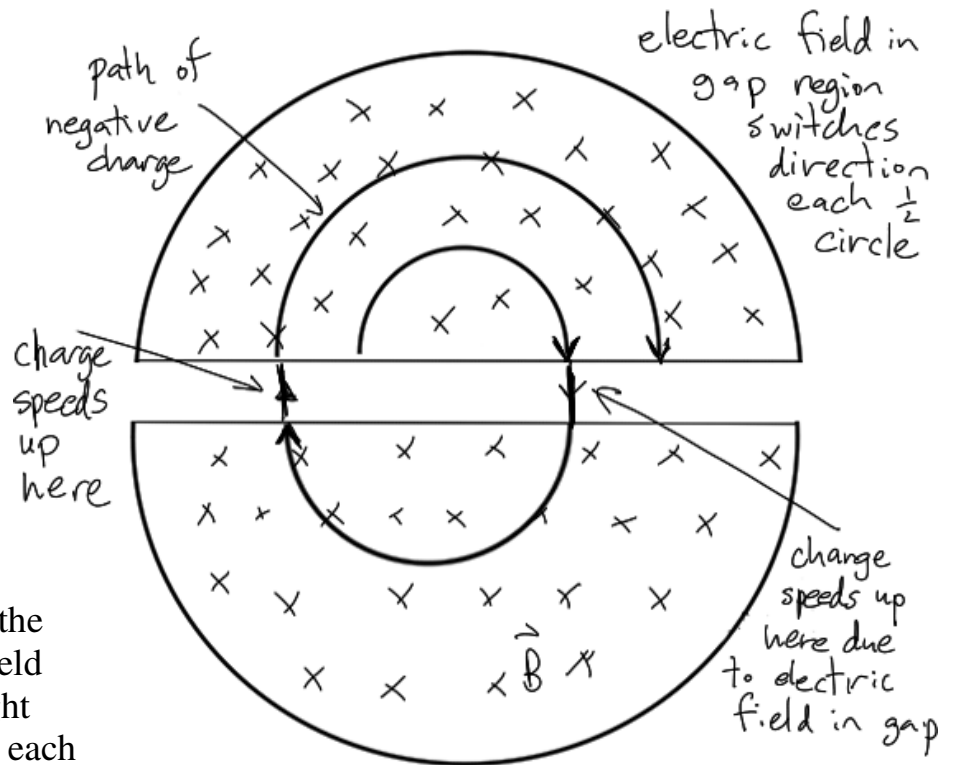 path of
negative
charge
electric field in
gap region
switches
direction
each 1/2
circle
charge
speeds
up
here
change
speeds up
here due
to electric
field in gap
B
the
eld
ht
each